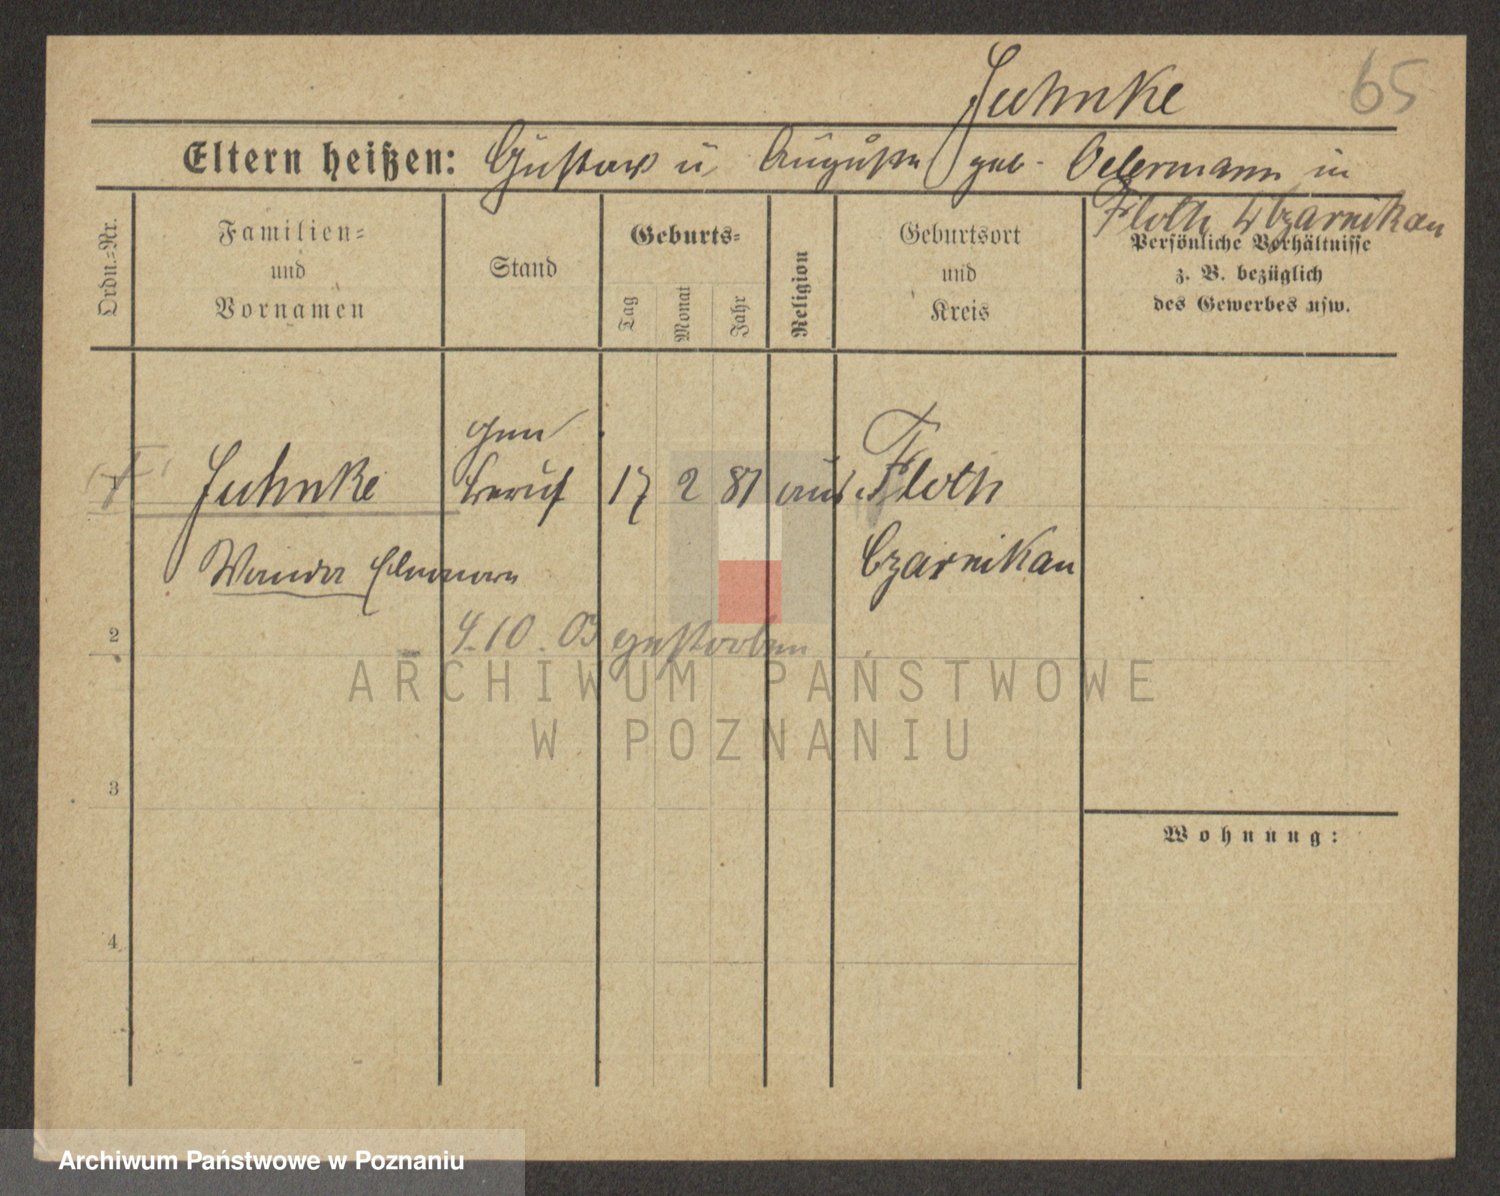 Juhnke
65
Eltern heißen: Gustav u. Auguste geb. Oelermann in
Floth Kr Czarnikau
Ordn.=Nr.
Familien=
und
Vornamen
Stand
Geburts=
Tag
Monat
Jahr
Religion
Geburtsort
und
Kreis
Persönliche Verhältnisse
z. B. bezüglich
des Gewerbes usw.
Juhnke
Beruf
17
2
81
Floth
Wanda
Czarnikau
4.10.03 gestorben
2
3
4
Wohnung:
ARCHIWUM PAŃSTWOWE
W POZNANIU
Archiwum Państwowe w Poznaniu